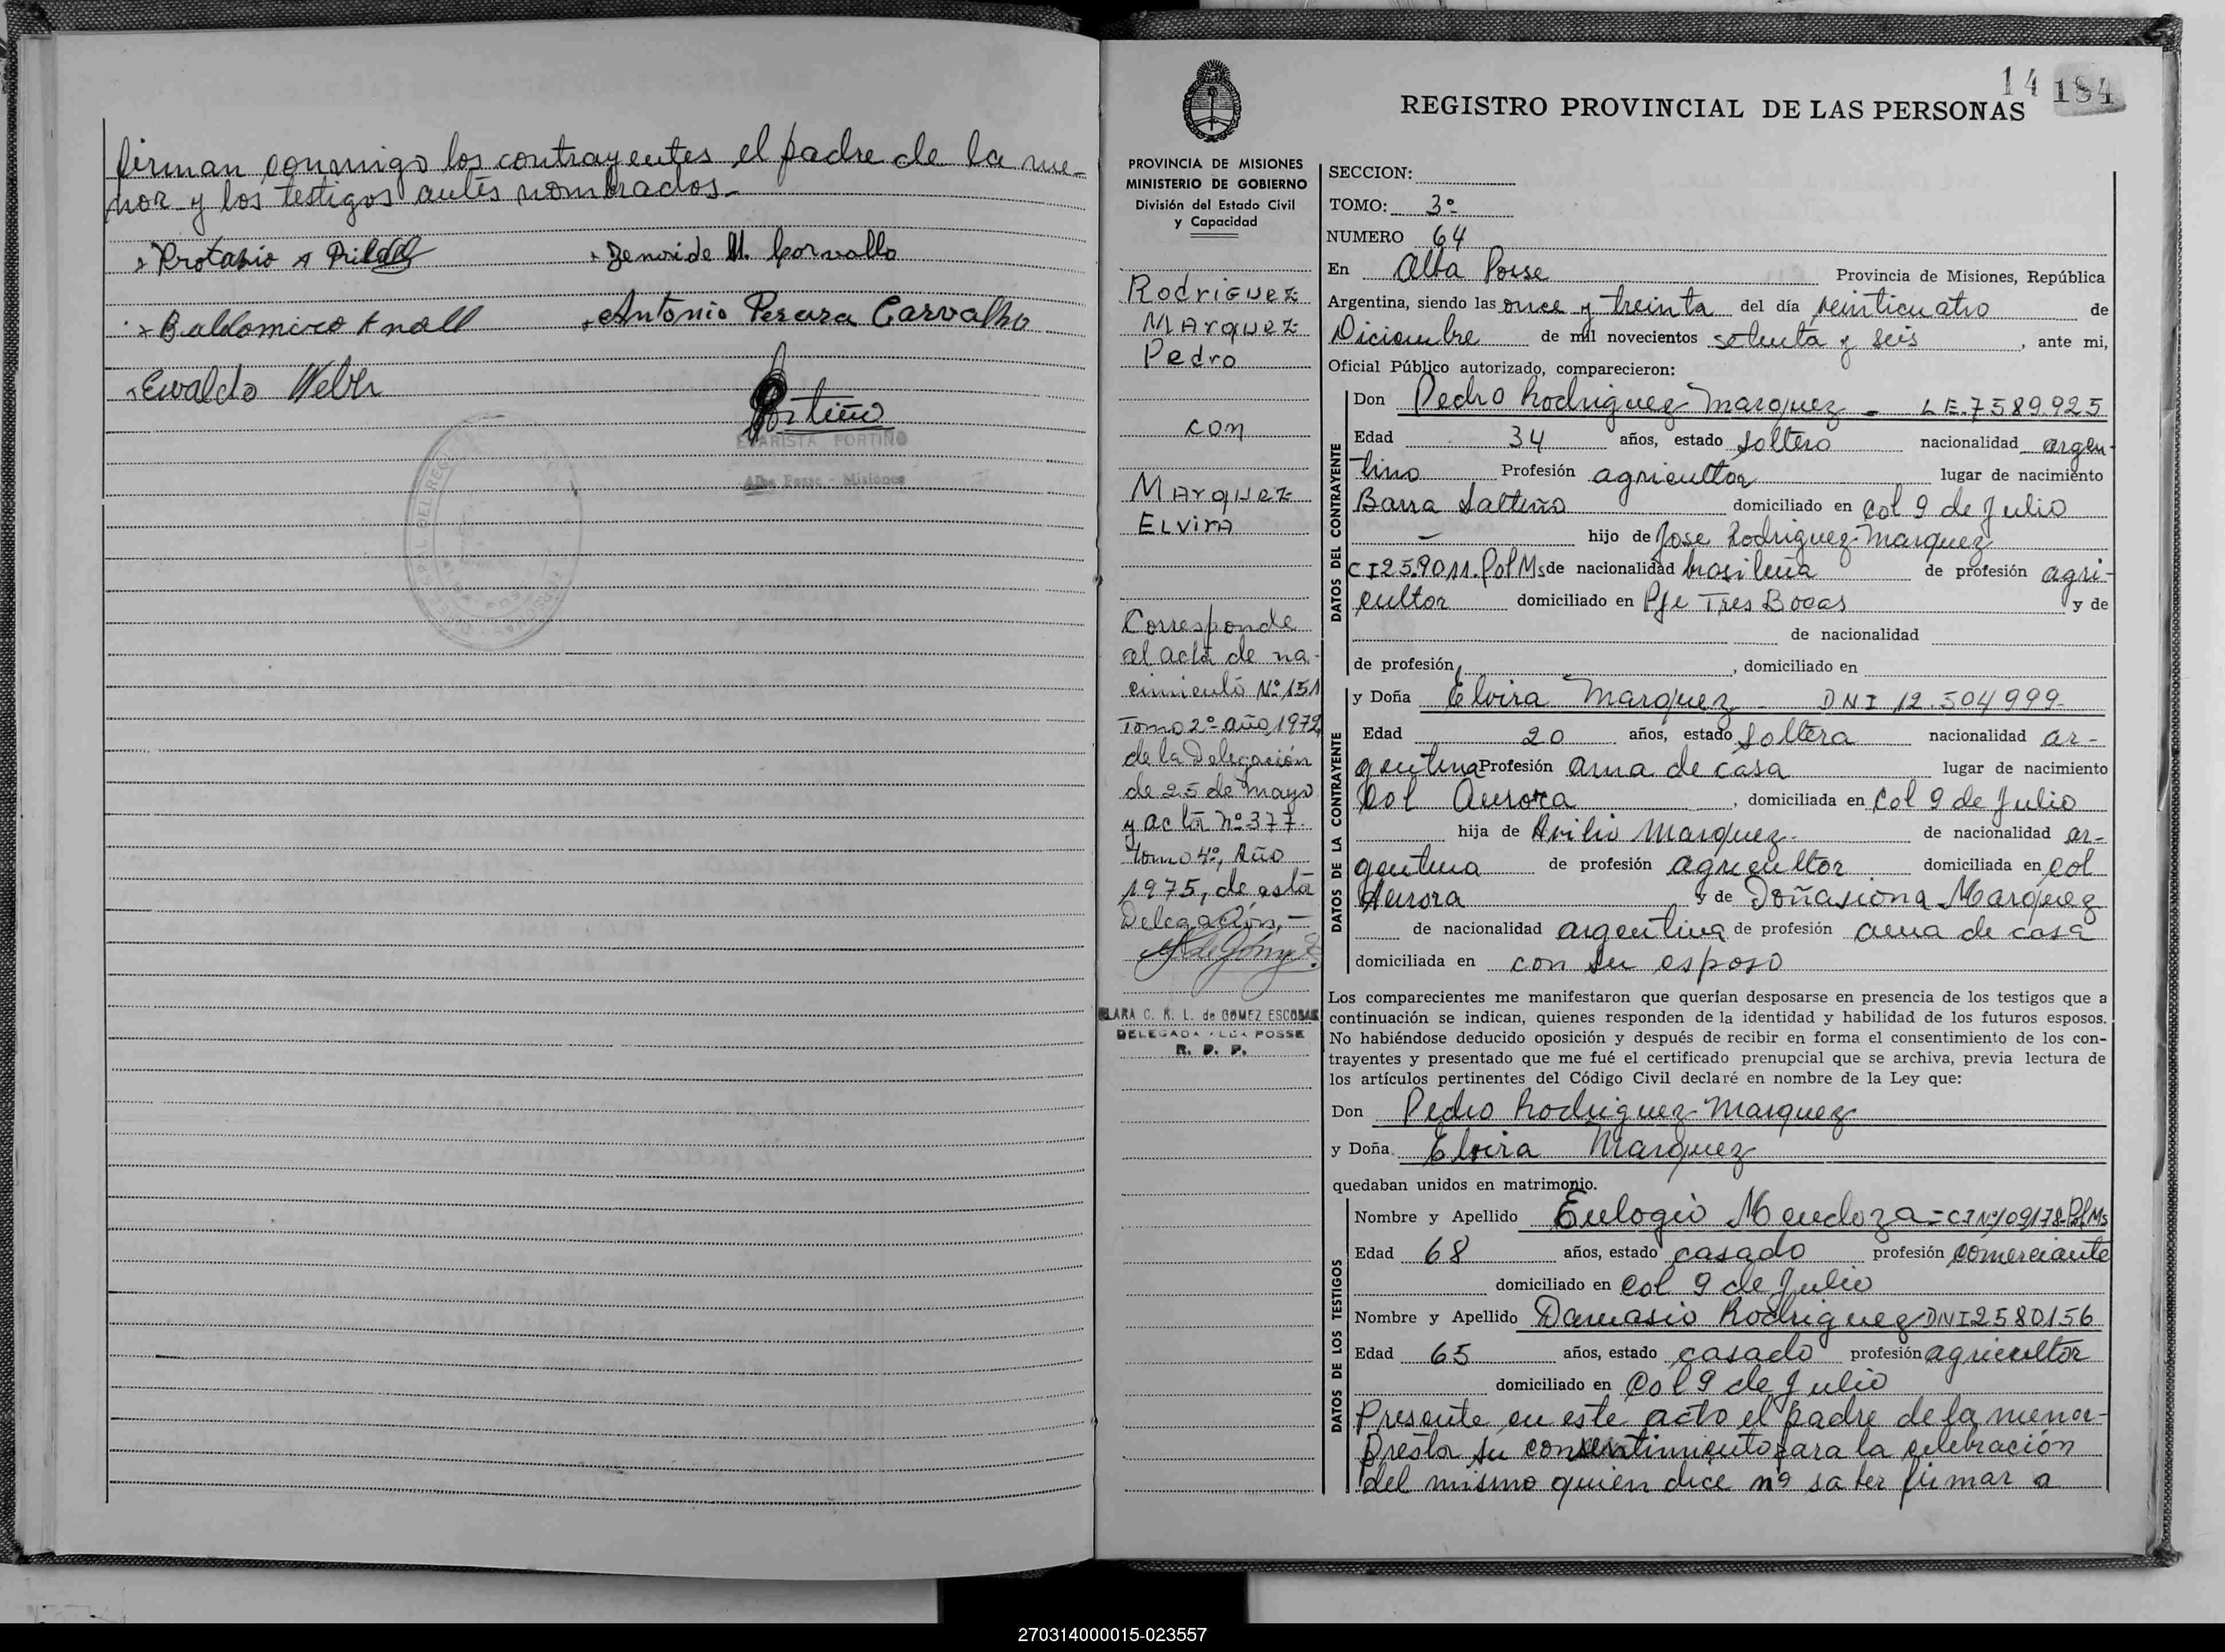 firman conmigo los contrayentes el padre de la me-
nor y los testigos antes nombrados.-
Protasio A
Zenaide M. Corvallo
Baldomiro Knoll
Antonio Pereira Carvalho
Ewaldo Weber
EVARISTA PORTIÑO
Alba Posse - Misiones
14 184
REGISTRO PROVINCIAL DE LAS PERSONAS
PROVINCIA DE MISIONES
MINISTERIO DE GOBIERNO
División del Estado Civil
y Capacidad
Rodriguez
Marquez
Pedro
con
Marquez
Elvira
Corresponde
al acta de na-
cimiento Nº 151
Tomo 2º Año, 1972,
de la Delegación
de 25 de Mayo
y acta nº 377.
tomo 4º, Año
1975, de esta
Delegación,-
CLARA C. K. L. de GOMEZ ESCOBAR
DELEGADA ALBA POSSE
R. P. P.
SECCION:
TOMO: 3º
NUMERO 64
En Alba Posse Provincia de Misiones, República
Argentina, siendo las once y treinta del día veinticuatro de
Diciembre de mil novecientos setenta y seis, ante mi,
Oficial Público autorizado, comparecieron:
DATOS DEL CONTRAYENTE
Don Pedro Rodriguez Marquez - L E. 7589.925
Edad 34 años, estado soltero nacionalidad argen-
tino Profesión agricultor lugar de nacimiento
Barra Salteño domiciliado en Col 9 de Julio
- hijo de Jose Rodriguez Marquez
C I 259011. Pol Ms de nacionalidad brasileña de profesión agri-
cultor domiciliado en Pje Tres Bocas y de
de nacionalidad
de profesión, domiciliado en
DATOS DE LA CONTRAYENTE
y Doña Elvira Marquez - DNI 12.504999-
Edad 20 años, estado soltera nacionalidad ar-
gentina Profesión ama de casa lugar de nacimiento
Col Aurora, domiciliada en Col 9 de Julio
hija de Avilio Marquez - de nacionalidad ar-
gentina de profesión agricultor domiciliada en Col
Aurora y de Doñasiona Marquez
de nacionalidad argentina de profesión ama de casa
domiciliada en con su esposo
Los comparecientes me manifestaron que querían desposarse en presencia de los testigos que a
continuación se indican, quienes responden de la identidad y habilidad de los futuros esposos.
No habiéndose deducido oposición y después de recibir en forma el consentimiento de los con-
trayentes y presentado que me fué el certificado prenupcial que se archiva, previa lectura de
los artículos pertinentes del Código Civil declaré en nombre de la Ley que:
Don Pedro Rodriguez Marquez
y Doña Elvira Marquez
quedaban unidos en matrimonio.
DATOS DE LOS TESTIGOS
Nombre y Apellido Eulogio Mendoza = C I Nº 109178-Pol Ms
Edad 68 años, estado casado profesión comerciante
domiciliado en Col 9 de Julio
Nombre y Apellido Damasio Rodriguez DNI 2580156
Edad 65 años, estado casado profesión agricultor
domiciliado en Col 9 de Julio
Presente en este acto el padre de la menor-
presta su consentimiento para la celebración
del mismo quien dice no saber firmar a
270314000015-023557